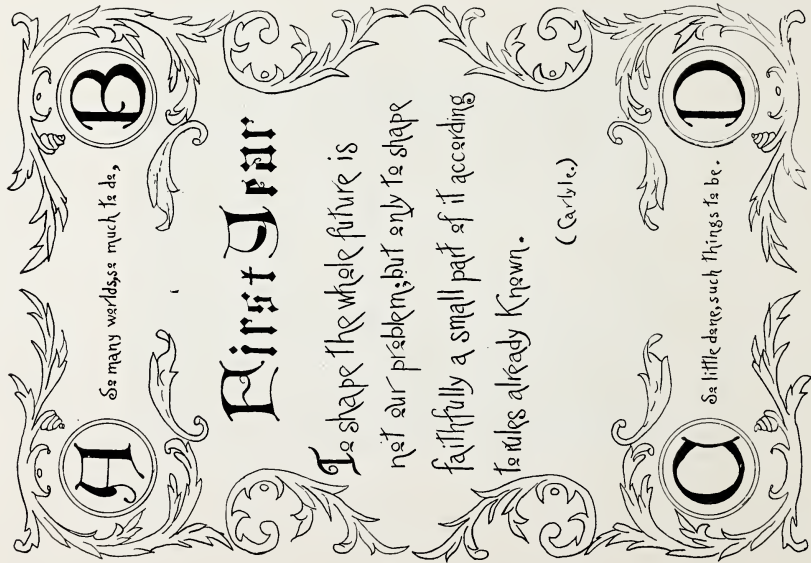 A So many worlds, so much to do, B
First Year
To shape the whole future is
not our problem; but only to shape
faithfully a small part of it according
to rules already Known.
(Carlyle.)
C So little done, such things to be. D